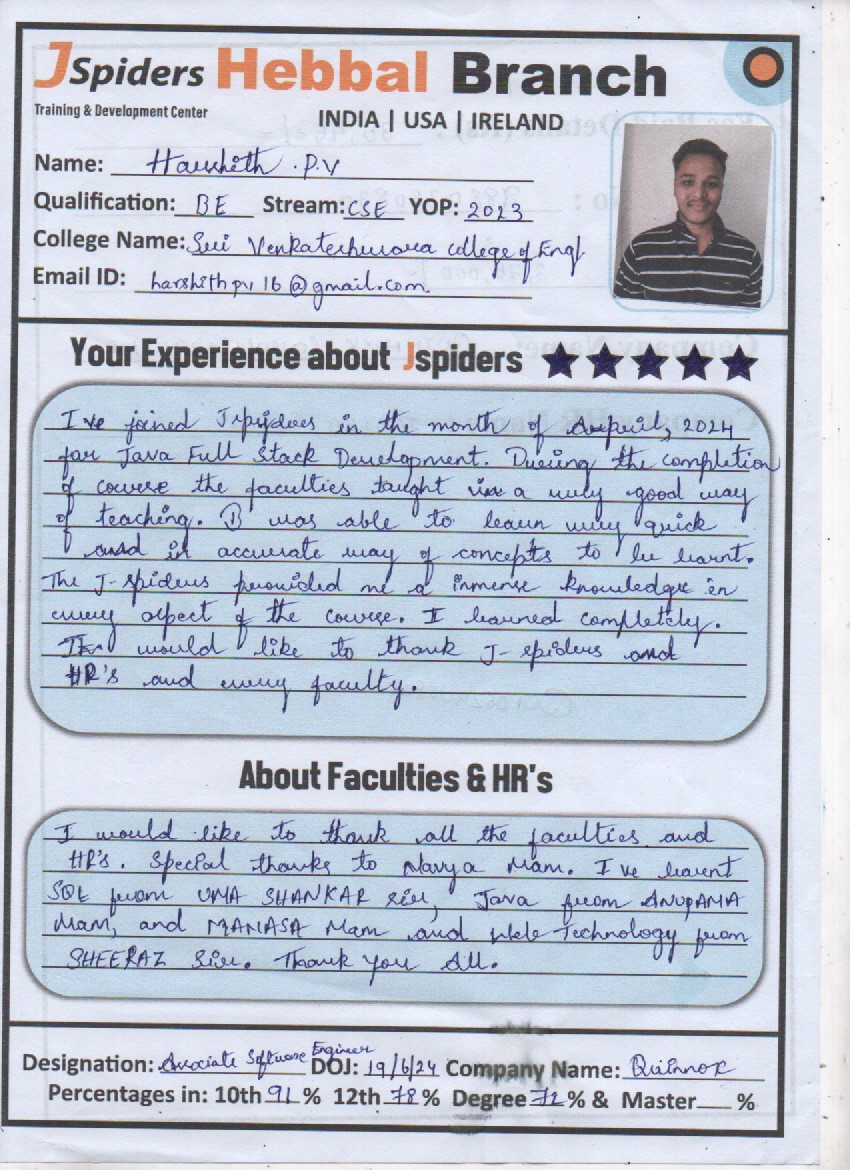 JSpiders Hebbal Branch
Training & Development Center
INDIA | USA | IRELAND
Name: Harshith .P.V
Qualification: BE Stream: CSE YOP: 2023
College Name: Sri Venkateshwara college of Engf
Email ID: harshithpv16@gmail.com.
Your Experience about Jspiders
I've joined Jspiders in the month of April, 2024
for Java Full Stack Development. During the completion
of course the faculties taught in a very good way
of teaching. I was able to learn very quick
and in accurate way of concepts to be learnt.
The J-spiders provided me a inmense knowledge in
every aspect of the course. I learned completely.
I would like to thank J-spiders and
HR's and every faculty.
About Faculties & HR's
I would like to thank all the faculties and
HR's. Special thanks to Navya Mam. I've learnt
SQL from UMA SHANKAR sir, Java from ANUPAMA
Mam, and MANASA Mam and Web Technology from
SHEERAZ Sir. Thank You All.
Designation: Associate Software Engineer DOJ: 19/6/24 Company Name: Quinnox
Percentages in: 10th 91 % 12th 78 % Degree 72 % & Master %